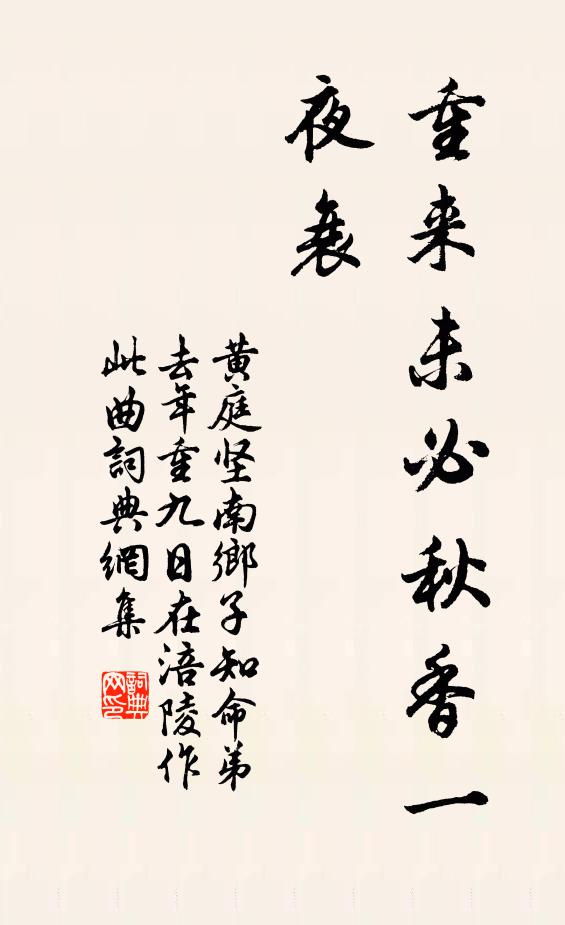 重来未必秋香一
夜衰
黄庭坚南鄉子知命弟
去年重九日在涪陵作
此曲詞典網集
詞典網印